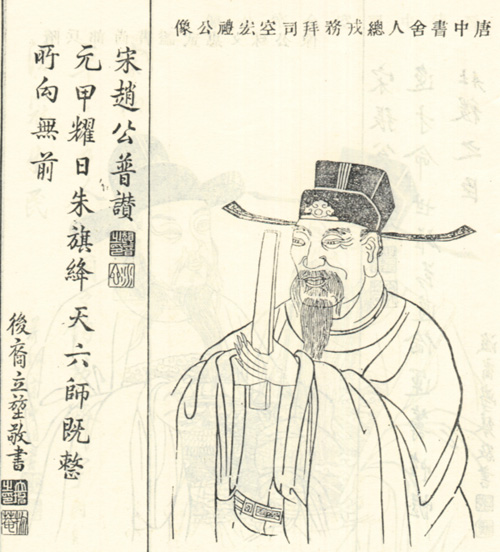 唐中書舍人總戎務拜司空宏禮公像
宋趙公普讚
元甲耀日朱旗絳天六師既整
所向無前
後裔立堃敬書